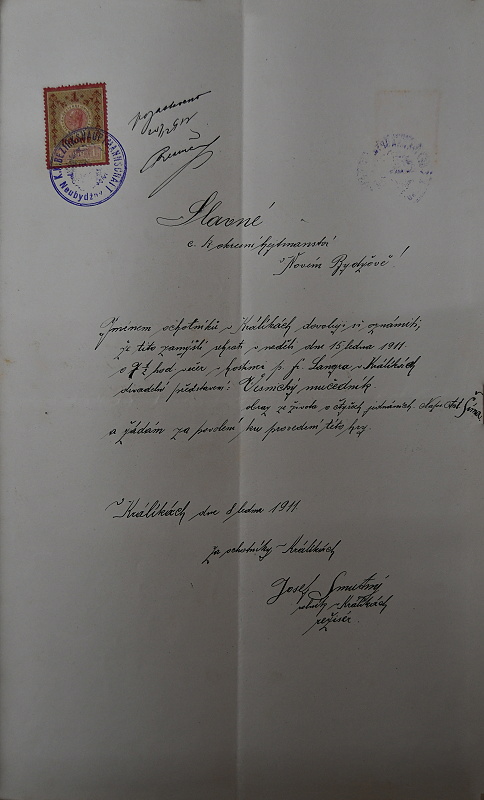 K.K. BEZIRKSHAUPTMANNSCHAFT
Neubydžow
Slavné
c. k. okresní hejtmanství
v Novém Bydžově!
Jménem ochotníků v Králíkách dovoluji si oznámiti,
že tito zamýšlí sehrati v neděli dne 15. ledna 1911.
o hod. večer v hostinci p. Fr. Langra v Králíkách
divadelní představení: Vesnický mučedník.
obraz ze života o čtyřech jednáních. Naps. Ant.
a žádám za povolení ku provedení této hry.
V Králíkách dne 8. ledna 1911.
za ochotníky v Králíkách
Josef Smutný
v Králíkách
režisér.